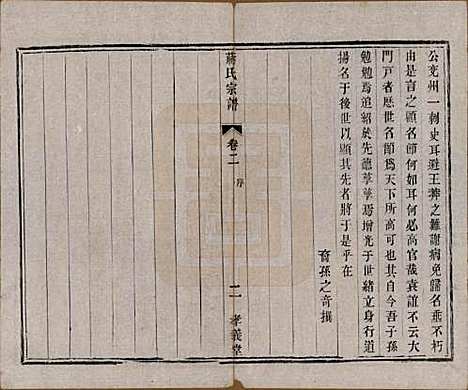 公兗州一刺史耳避王莽之難謝病免歸名垂不朽
由是言之顧名節何如耳何必高官哉袁誼不云大
門戶者歷世名節為天下所高可也其自今吾子孫
勉勉焉追紹於先德孳孳焉增光于世緒立身行道
揚名于後世以顯其先者將于是乎在
裔孫之奇撰
蔣氏宗譜
卷二
序
二
孝義堂